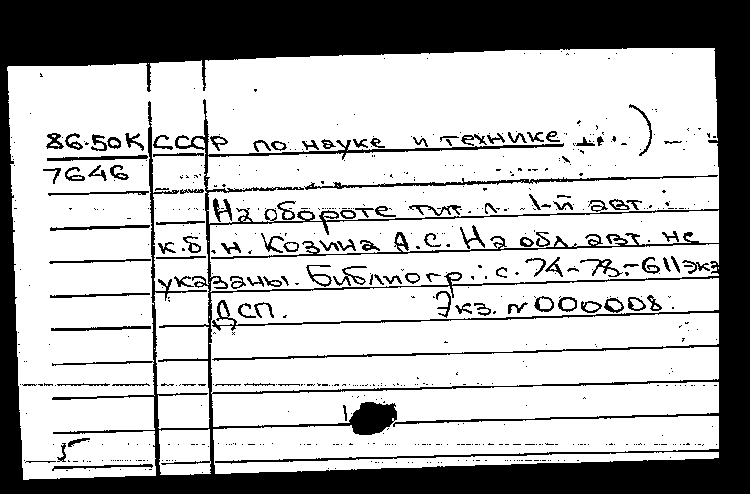 86.50К СССР по науке и технике ...)
7646
На обороте тит. л. 1-й авт.:
к.б.н. Козина А.С. На обл. авт. не
указаны. Библиогр.: с. 74-78.-611экз
ДСП. Экз. №000008.
5